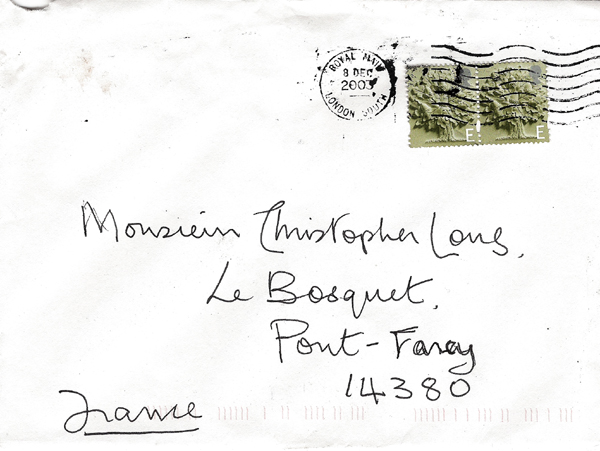 ROYAL MAIL
8 DEC
2003
LONDON SOUTH
E E
Monsieur Christopher Long,
Le Bosquet,
Pont-Farcy
14380
France